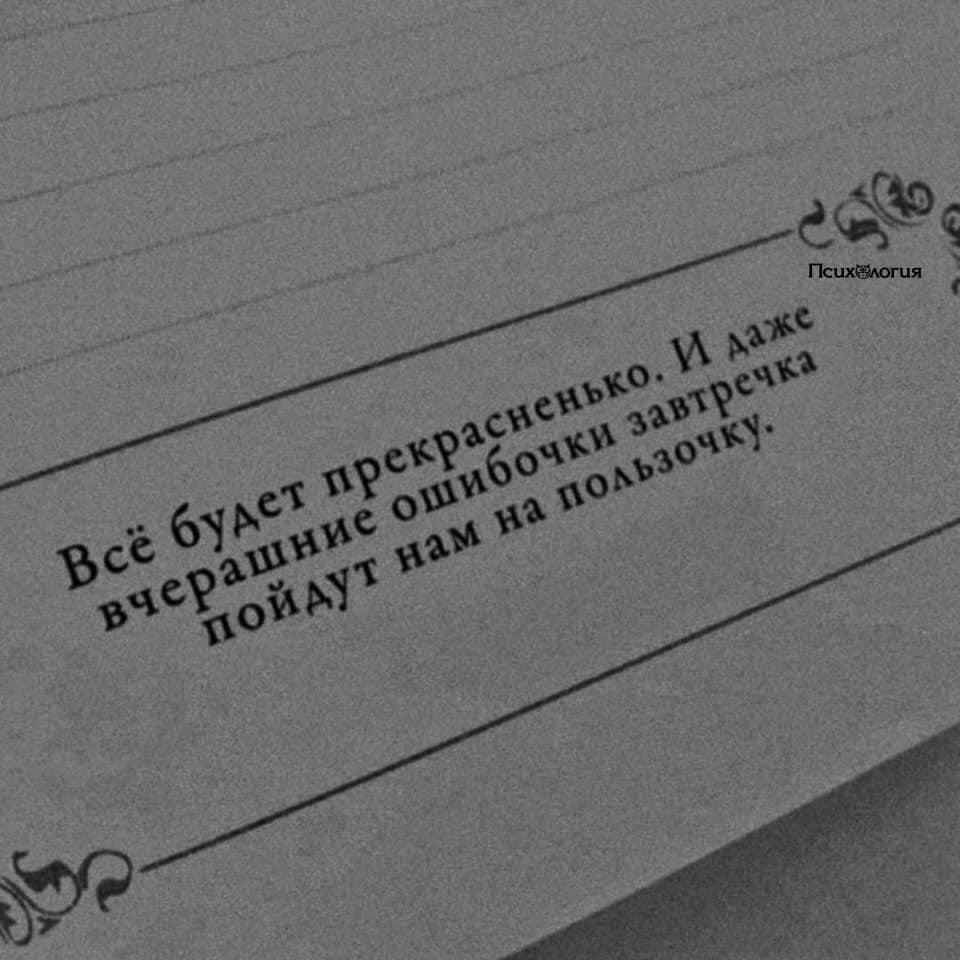 Психология
Всё будет прекрасненько. И даже
вчерашние ошибочки завтречка
пойдут нам на пользочку.